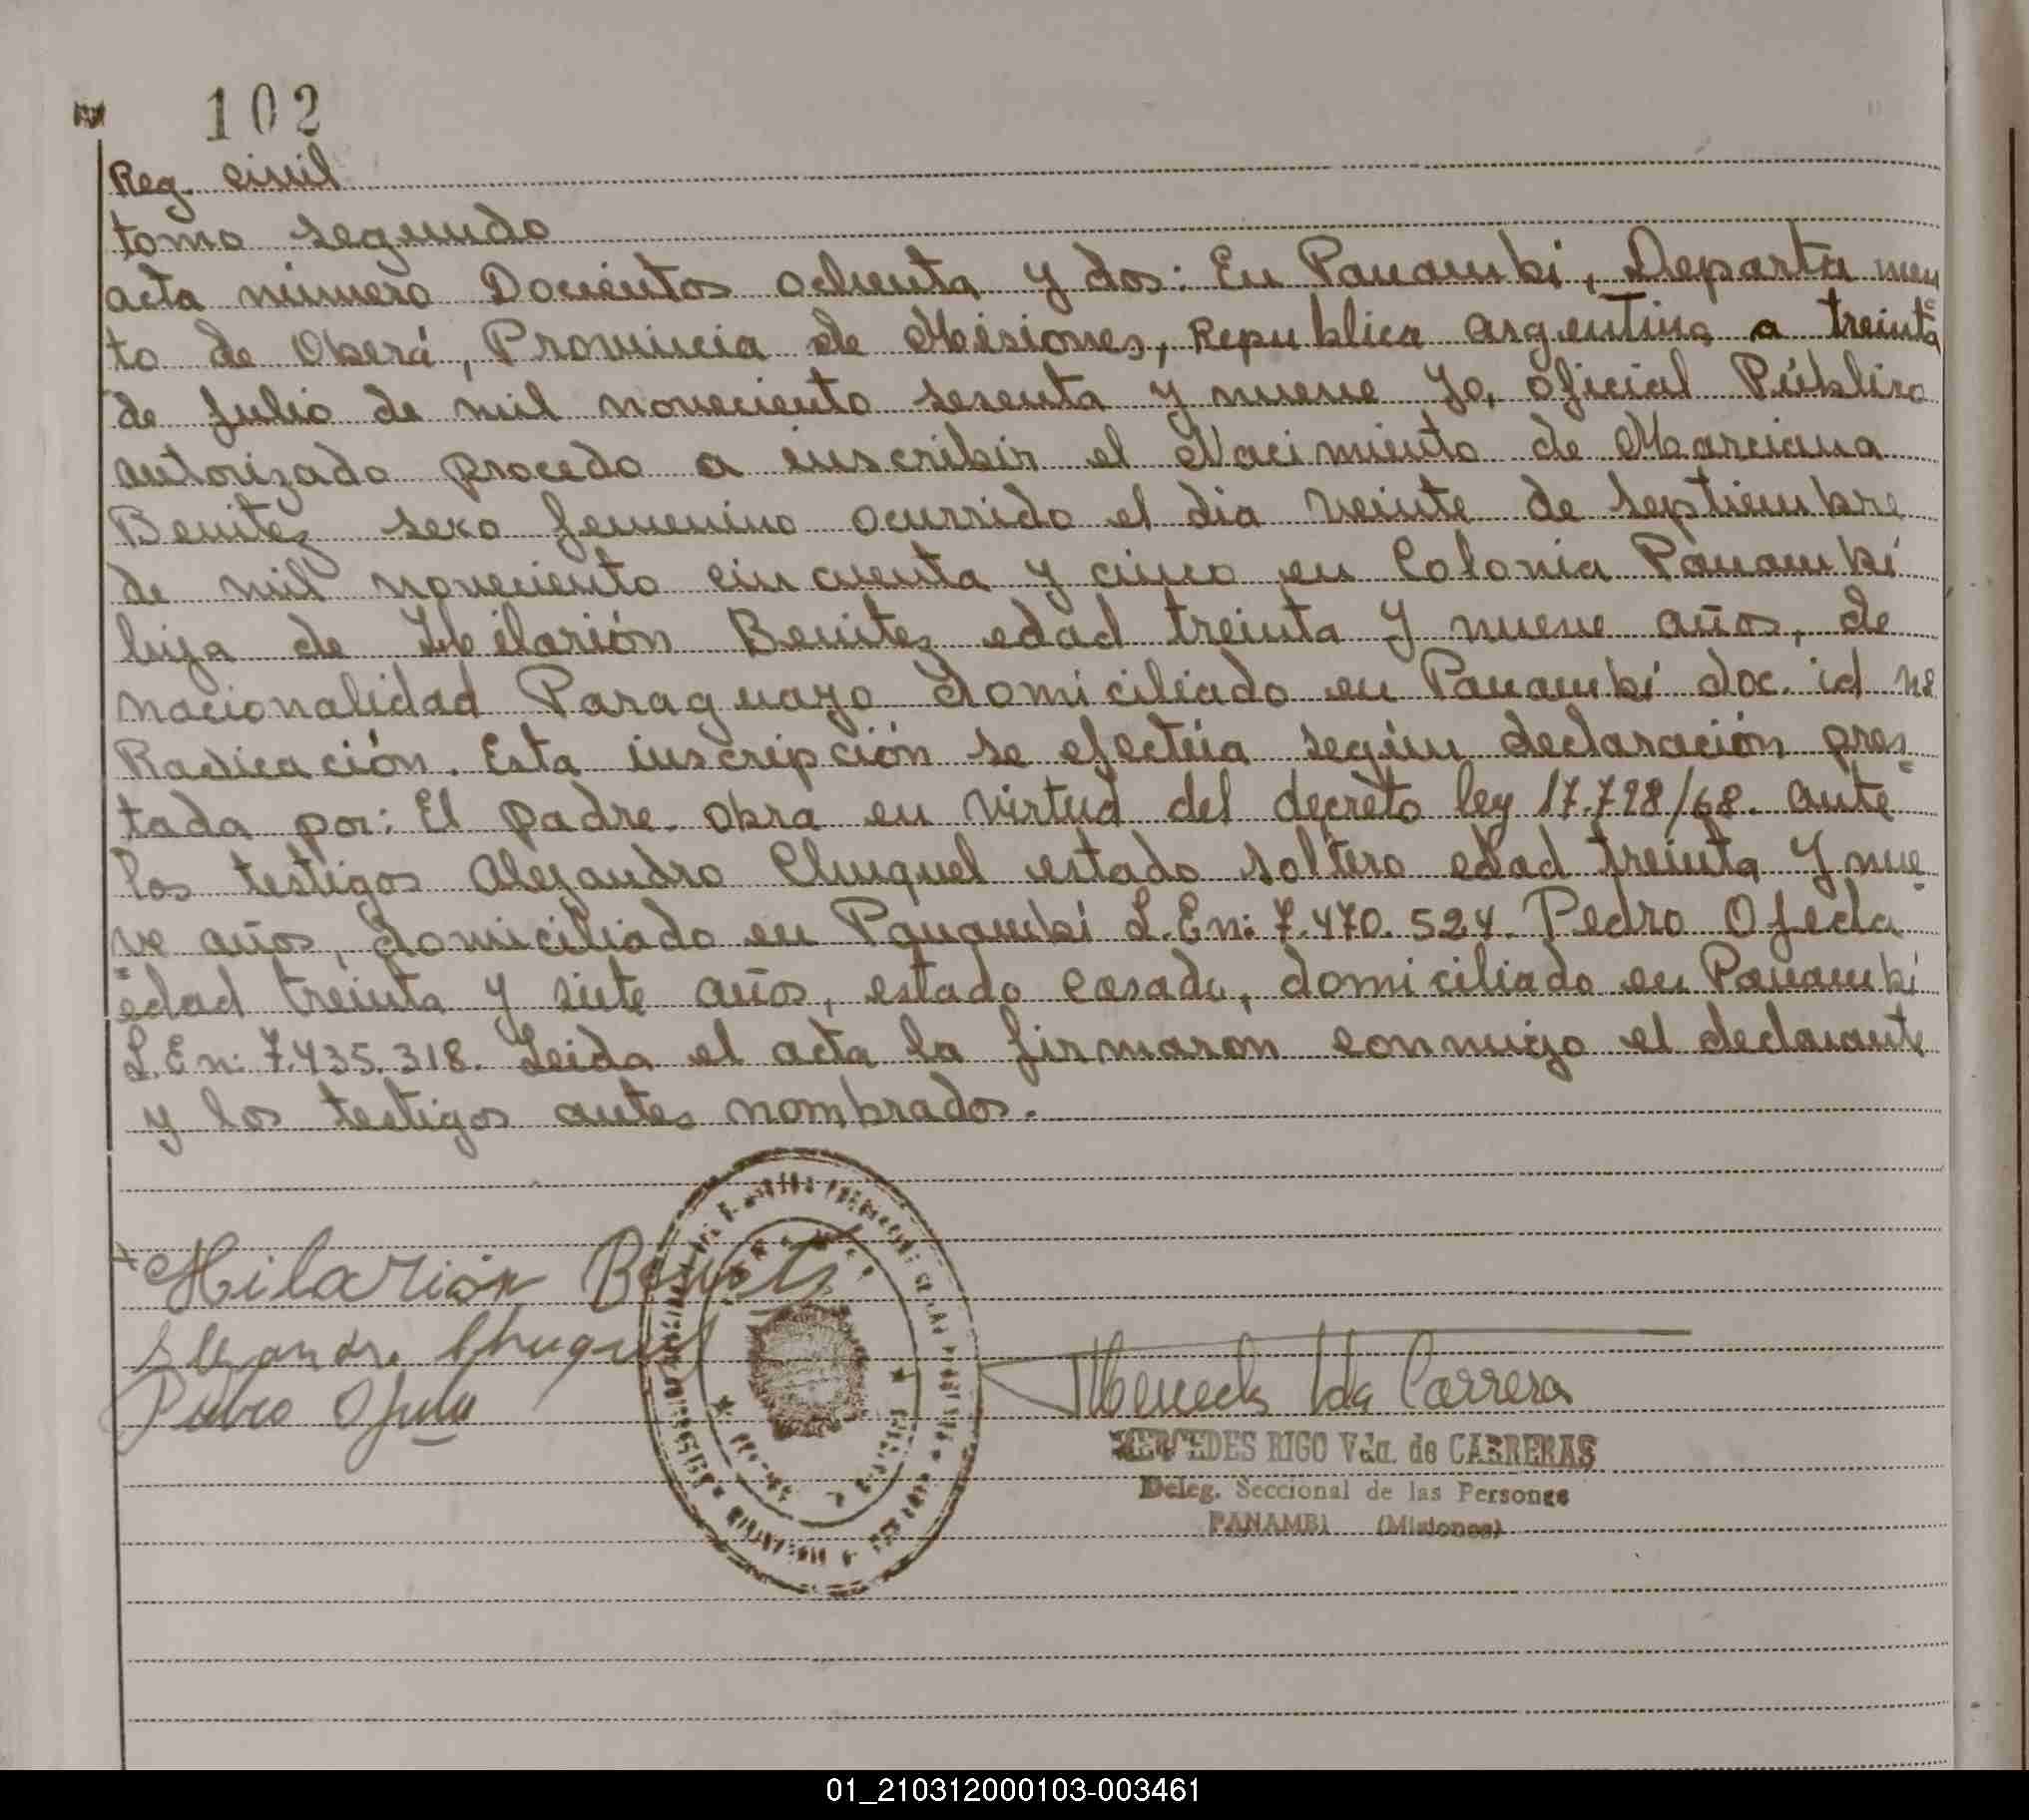 102
Reg. civil
tomo segundo
acta número Docientos ochenta y dos: En Panambí, Departamen
to de Oberá, Provincia de Misiones, Republica Argentina a treinta
de Julio de mil noveciento sesenta y nueve Yo, oficial Público
autorizado procedo a inscribir el Nacimiento de Marciana
Benitez sexo femenino ocurrido el dia veinte de septiembre
de mil noveciento cincuenta y cinco en Colonia Panambí
hija de Hilarión Benitez edad treinta y nueve años, de
nacionalidad Paraguayo domiciliado en Panambí doc. id nº
Radicación. Esta inscripción se efectúa según declaración pres
tada por: El padre. Obra en virtud del decreto ley 17.728/68. ante
los testigos Alejandro Chuquel estado soltero edad treinta y nue
ve años, domiciliado en Panambí L.E n: 7.470.524. Pedro Ojeda
edad treinta y siete años, estado casado, domiciliado en Panambí
L.E n: 7.435.318. Leida el acta la firmaron conmigo el declarante
y los testigos antes nombrados.
Hilarión Benitez
Alejandro Chuquel
Pedro Ojeda
Carrera
MERCEDES RIGO Vda. de CARRERAS
Deleg. Seccional de las Personas
PANAMBI (Misiones)
01_210312000103-003461